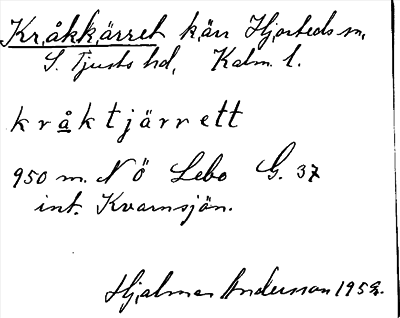 Kråkkärret kärr Hjorteds sn,
S. Tjusts hd, Kalm. l.
kråktjärrett
950 m. N Ö Lebo G. 37
int. Kvarnsjön.
Hjalmar Andersson 1952.